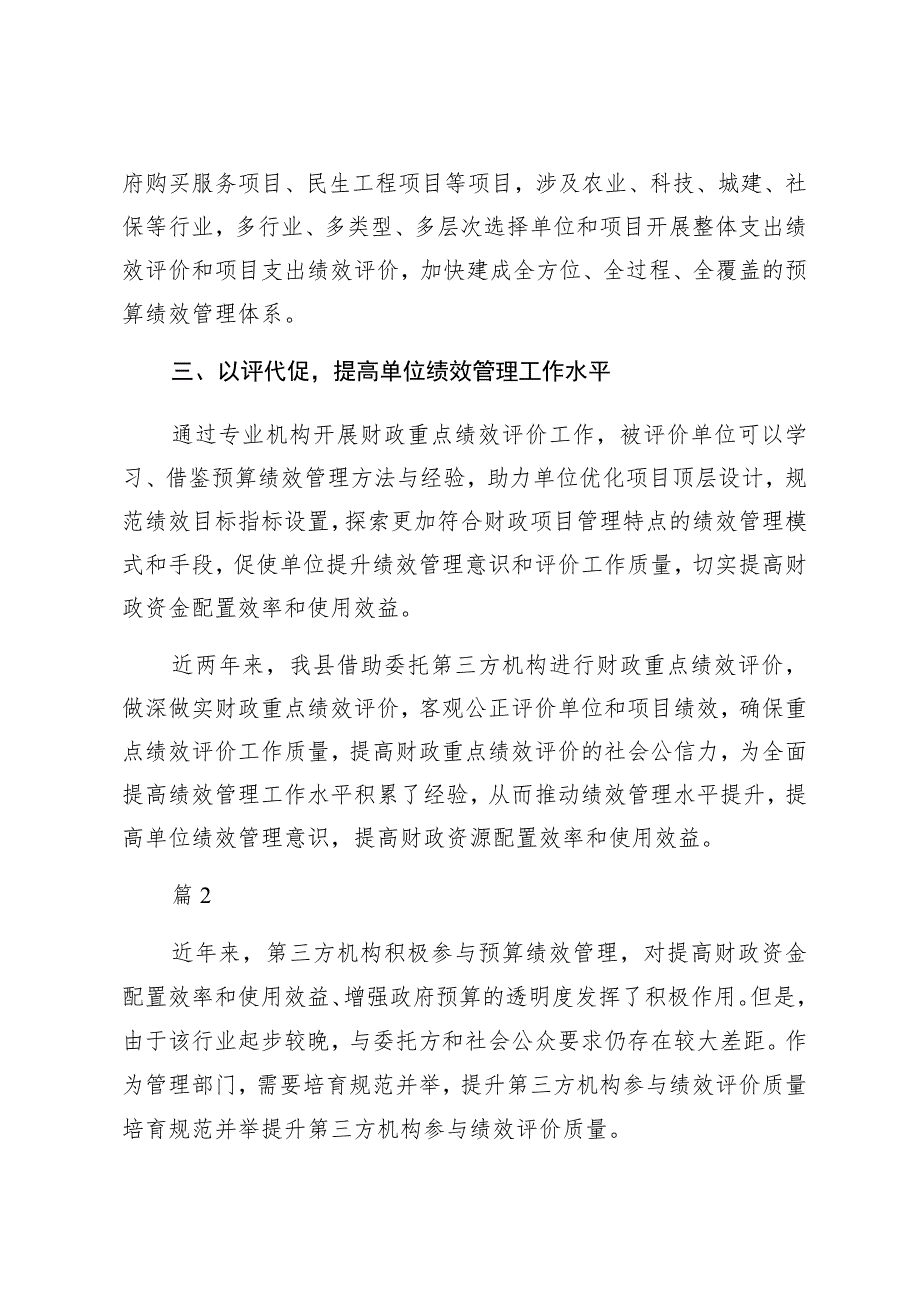 府购买服务项目、民生工程项目等项目，涉及农业、科技、城建、社
保等行业，多行业、多类型、多层次选择单位和项目开展整体支出绩
效评价和项目支出绩效评价，加快建成全方位、全过程、全覆盖的预
算绩效管理体系。
三、以评代促，提高单位绩效管理工作水平
通过专业机构开展财政重点绩效评价工作，被评价单位可以学
习、借鉴预算绩效管理方法与经验，助力单位优化项目顶层设计，规
范绩效目标指标设置，探索更加符合财政项目管理特点的绩效管理模
式和手段，促使单位提升绩效管理意识和评价工作质量，切实提高财
政资金配置效率和使用效益。
近两年来，我县借助委托第三方机构进行财政重点绩效评价，
做深做实财政重点绩效评价，客观公正评价单位和项目绩效，确保重
点绩效评价工作质量，提高财政重点绩效评价的社会公信力，为全面
提高绩效管理工作水平积累了经验，从而推动绩效管理水平提升，提
高单位绩效管理意识，提高财政资源配置效率和使用效益。
篇 2
近年来，第三方机构积极参与预算绩效管理，对提高财政资金
配置效率和使用效益、增强政府预算的透明度发挥了积极作用。但是，
由于该行业起步较晚，与委托方和社会公众要求仍存在较大差距。作
为管理部门，需要培育规范并举，提升第三方机构参与绩效评价质量
培育规范并举提升第三方机构参与绩效评价质量。